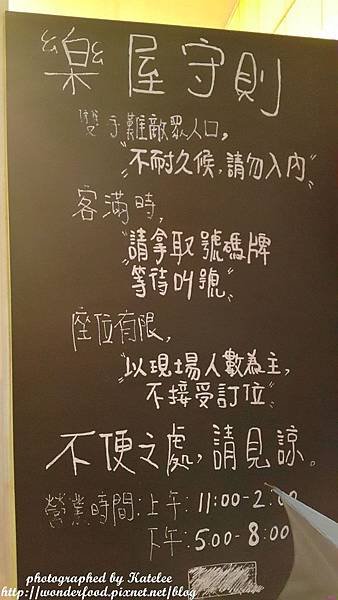 樂屋守則
雙手難敵眾人口,
"不耐久候,請勿入內"
客滿時,
"請拿取號碼牌
等待叫號"
座位有限,
"以現場人數為主,
不接受訂位"
不便之處,請見諒。
營業時間:上午:11:00-2:00
下午:5:00-8:00
photographed by Katelee
http://wonderfood.pixnet.net/blog